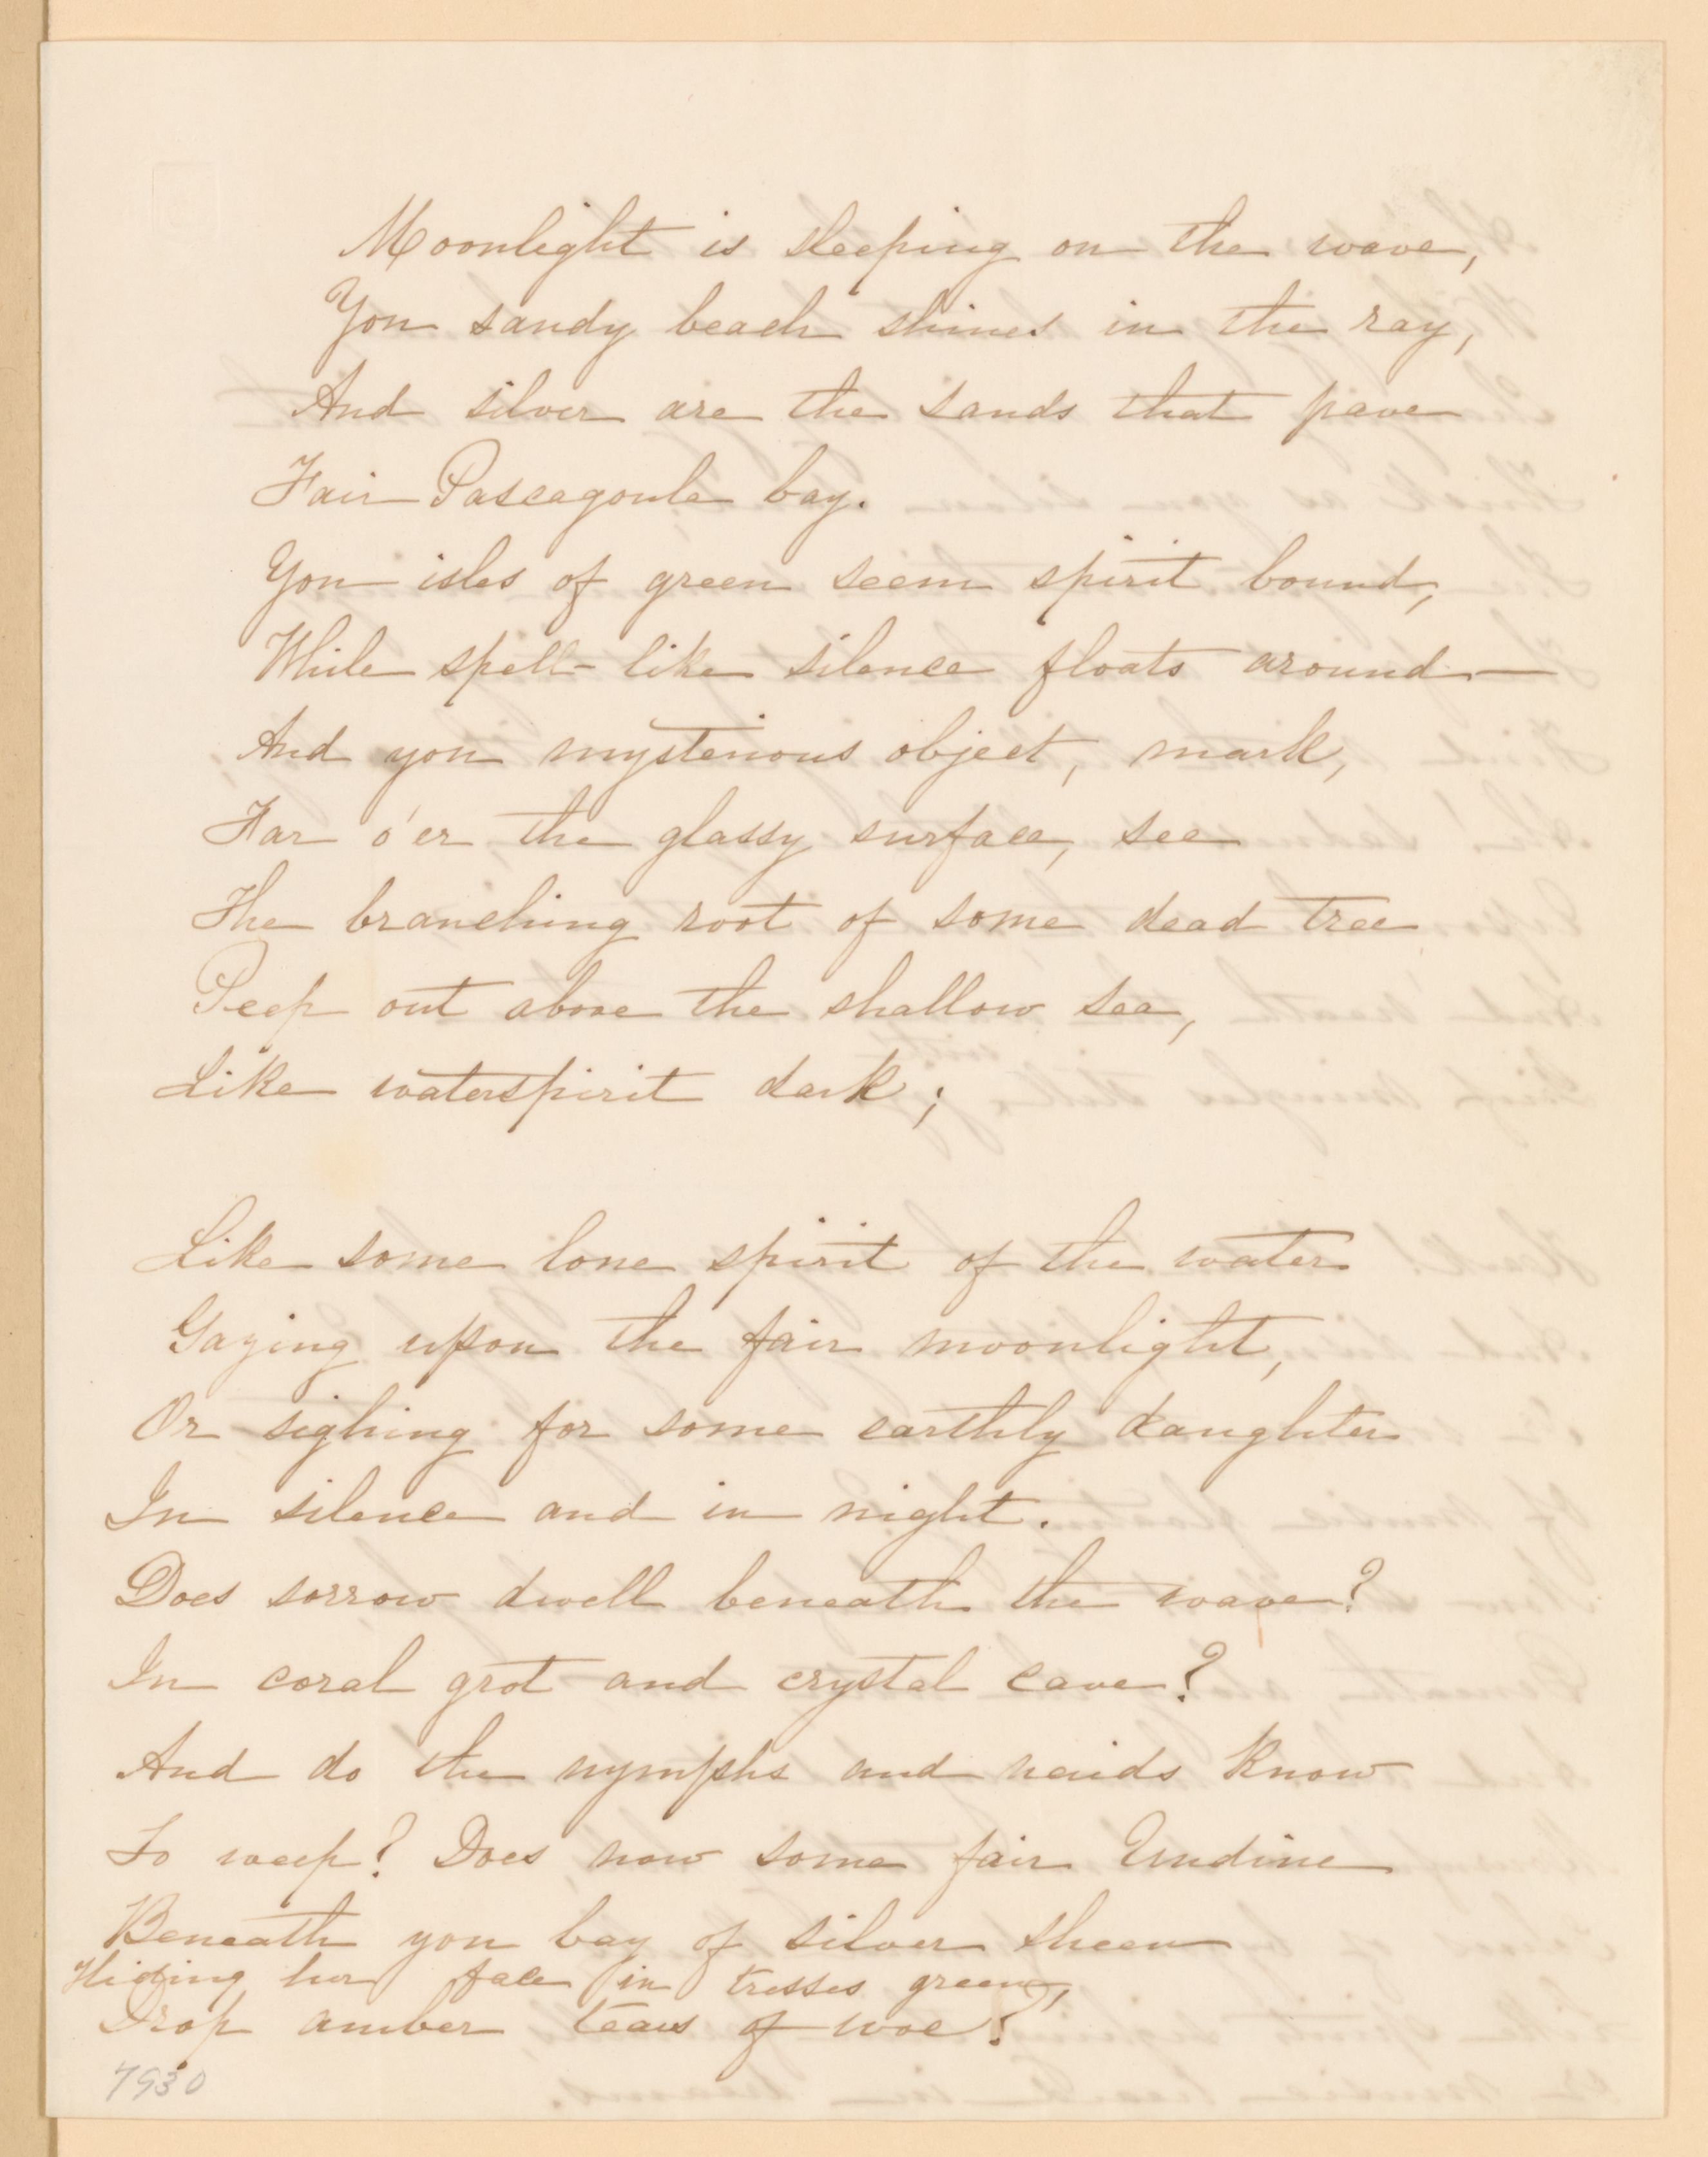 Moonlight is sleeping on the wave,
Yon sandy beach shines in the ray,
And silver are the sands that pave
Fair Pascagoula bay.
Yon isles of green seem spirit bound,
While spell-like silence floats around—
And yon mysterious object, mark,
Far o'er the glassy surface, see
The branching root of some dead tree
Peep out above the shallow sea,
Like waterspirit dark;
Like some lone spirit of the water
Gazing upon the fair moonlight,
Or sighing for some earthly daughter
In silence and in night.
Does sorrow dwell beneath the wave?
In coral grot and crystal cave?
And do the nymphs and naids know
To weep? Does now some fair Undine
Beneath yon bay of silver sheen
Hiding her face in tresses green,
Drop amber tears of woe?
7930